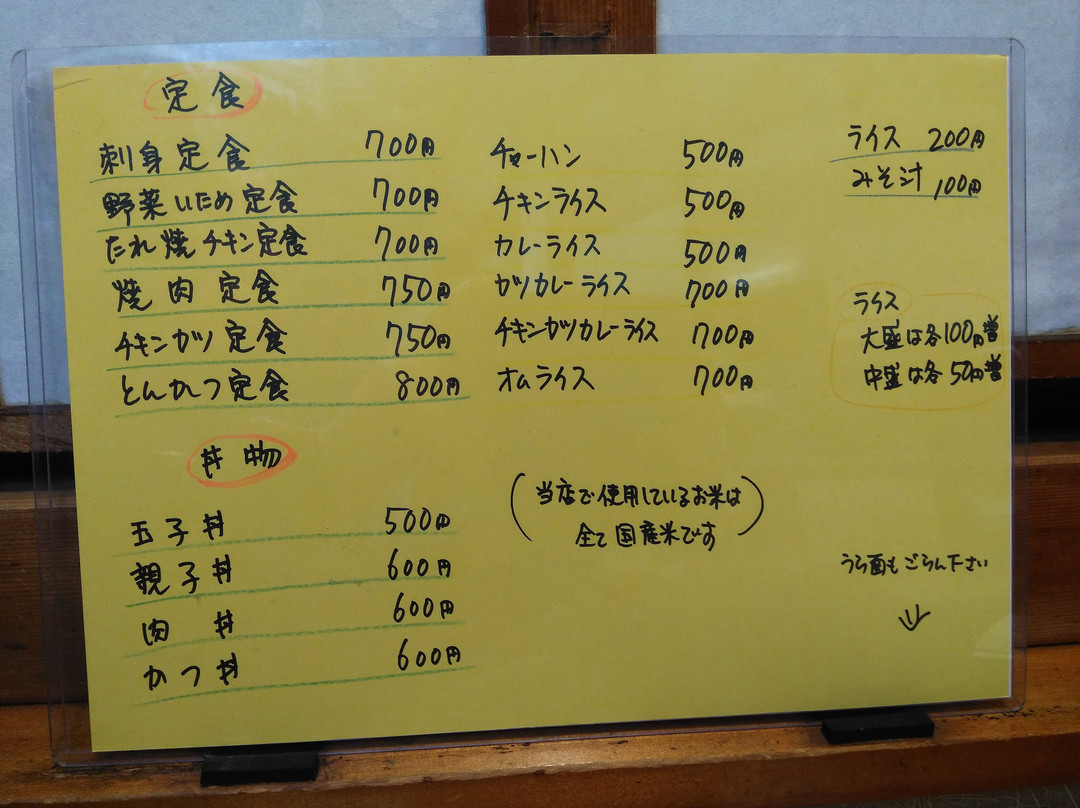 定食
刺身定食 700円
野菜いため定食 700円
たれ焼チキン定食 700円
焼肉定食 750円
チキンカツ定食 750円
とんかつ定食 800円
丼物
玉子丼 500円
親子丼 600円
肉丼 600円
かつ丼 600円
チャーハン 500円
チキンライス 500円
カレーライス 500円
カツカレーライス 700円
チキンカツカレーライス 700円
オムライス 700円
(当店で使用しているお米は
全て国産米です)
ライス 200円
みそ汁 100円
ライス
大盛は各100円増
中盛は各50円増
うら面もごらん下さい
↓